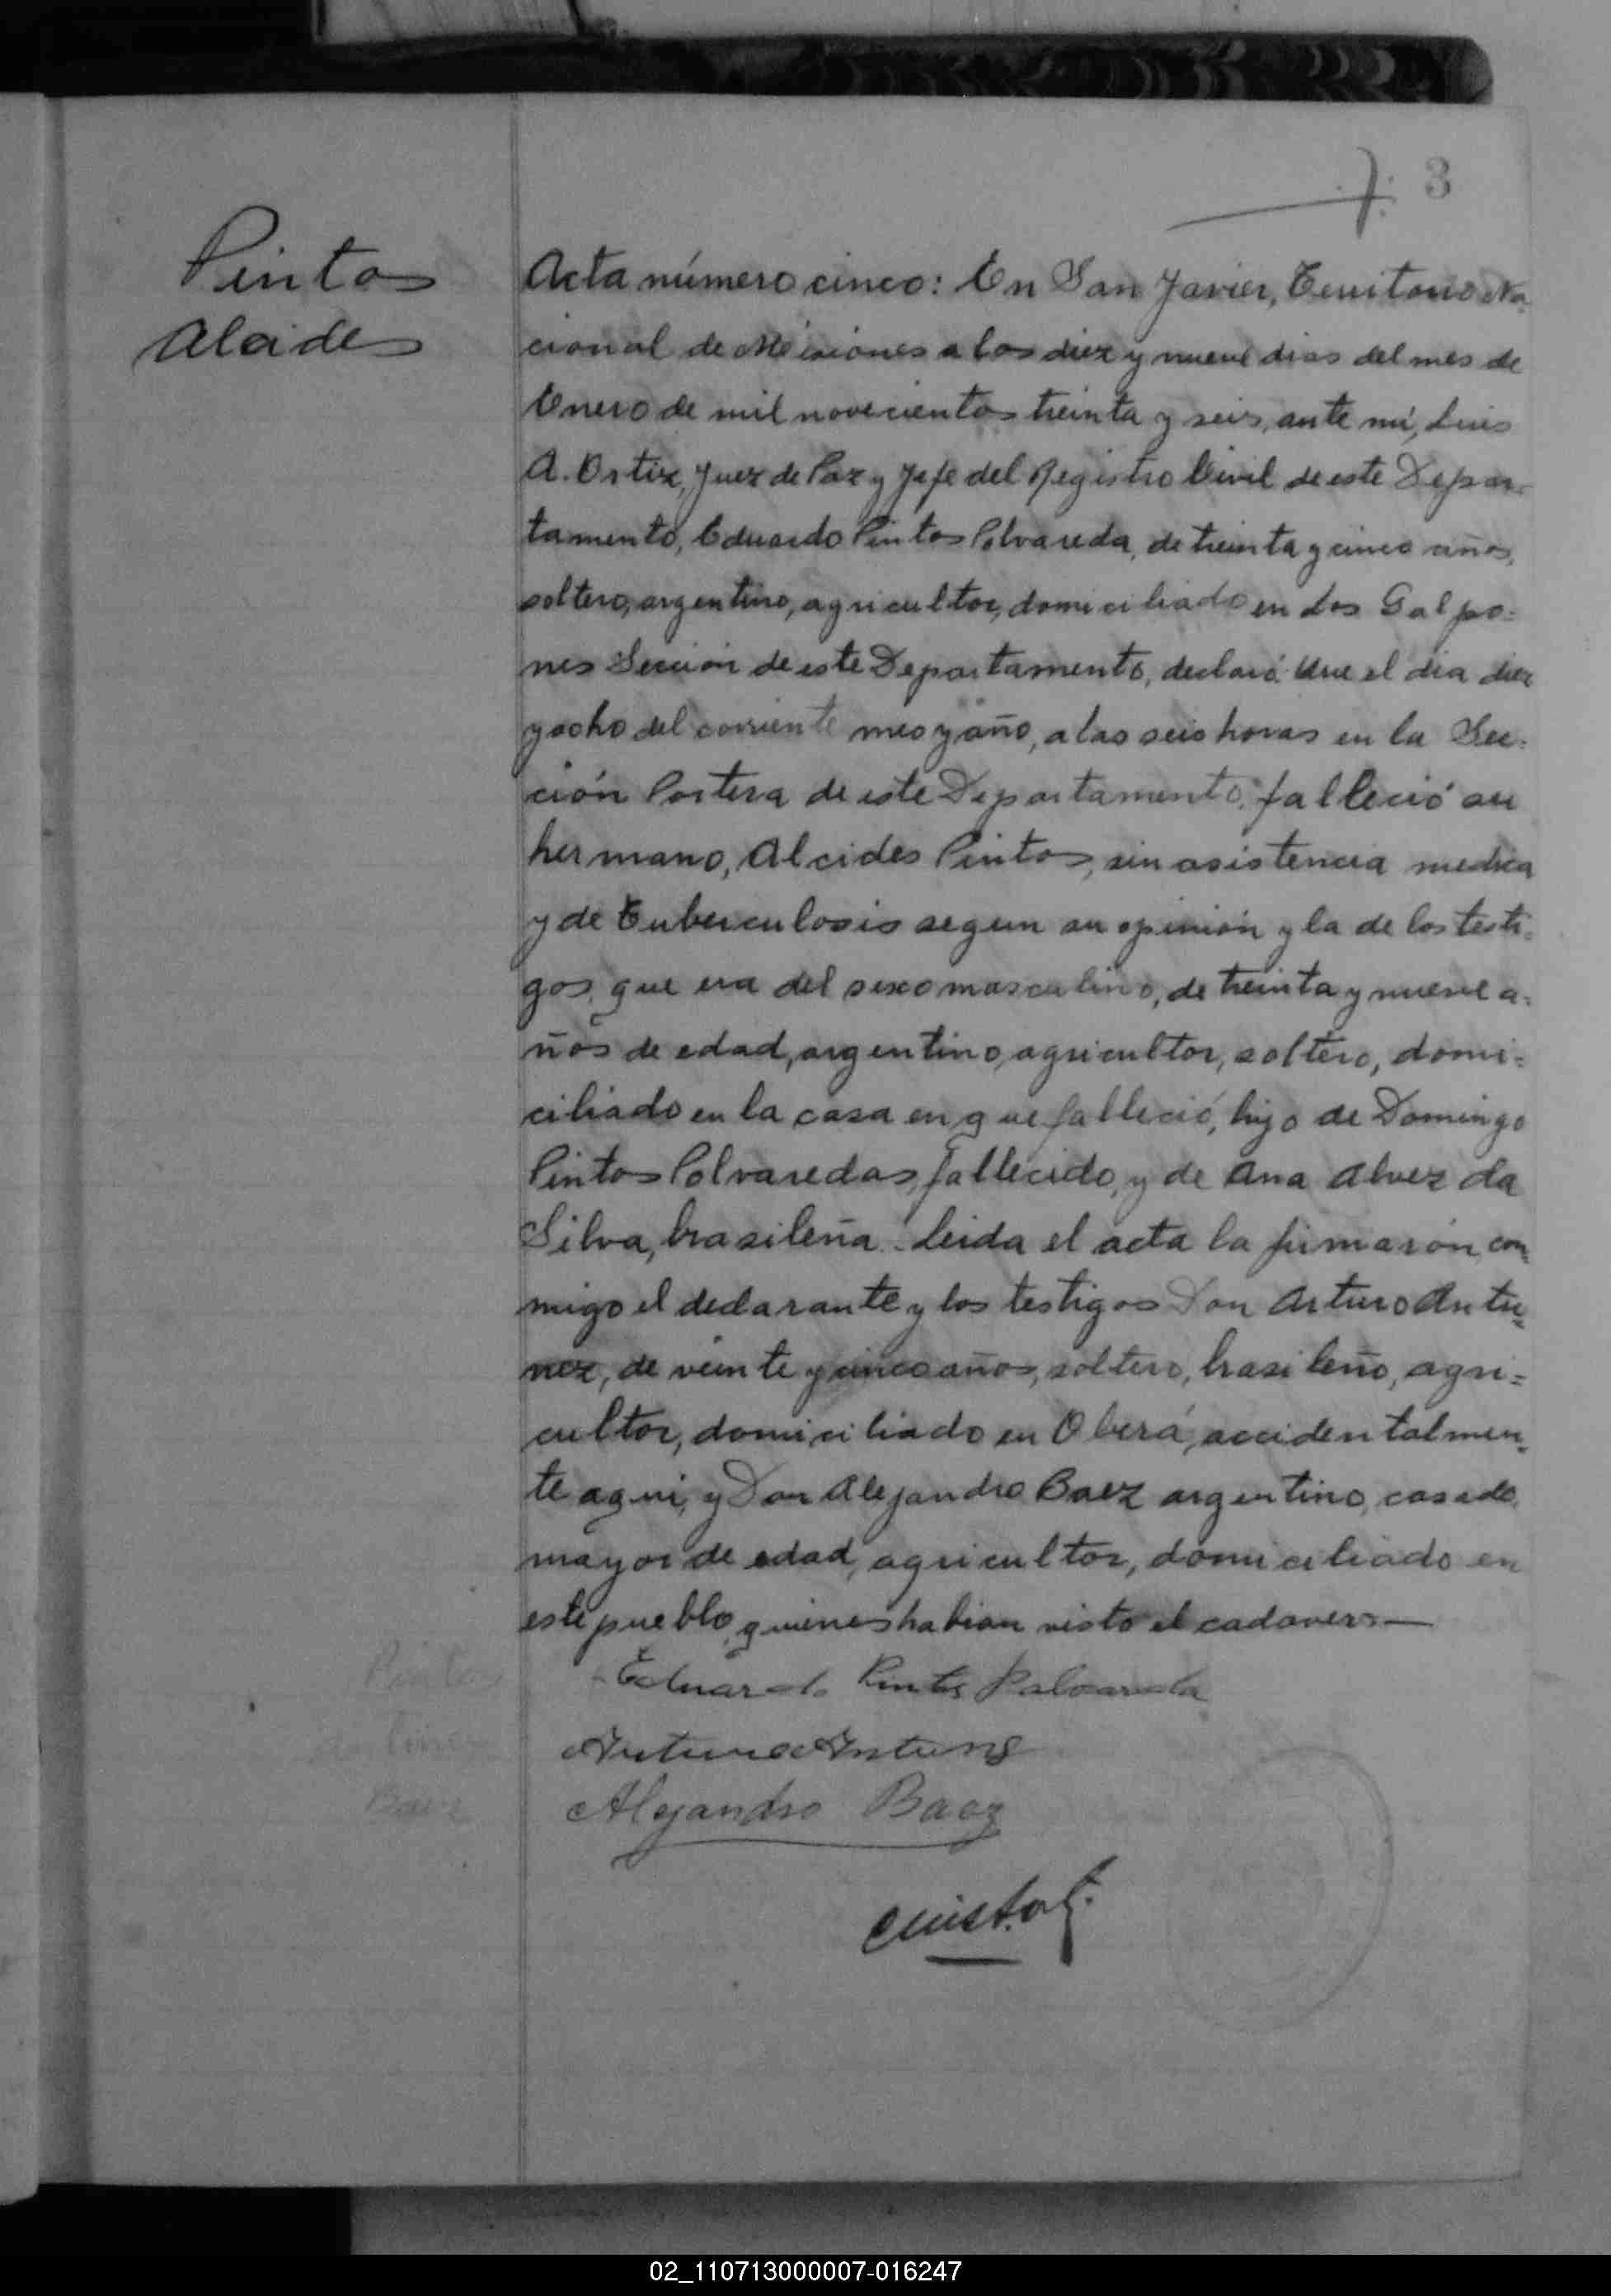 3
Pintos
Alcides
Acta número cinco: En San Javier, Territorio Na-
cional de Misiones a los diez y nueve dias del mes de
Enero de mil novecientos treinta y seis, ante mí, Luis
A. Ortiz, Juez de Paz y Jefe del Registro Civil de este Depar-
tamento, Eduardo Pintos Polvareda, de treinta y cinco años,
soltero, argentino, agricultor, domiciliado en Los Galpo=
nes Sección de este Departamento, declaró: Que el dia diez
y ocho del corriente mes y año, a las seis horas en la Sec=
ción Portera de este Departamento, falleció su
hermano, Alcides Pintos, sin asistencia medica
y de Tuberculosis segun su opinión y la de los testi=
gos, que era del sexo masculino, de treinta y nueve a=
ños de edad, argentino, agricultor, soltero, domi=
ciliado en la casa en que falleció, hijo de Domingo
Pintos Polvaredas, fallecido, y de Ana Alvez da
Silva, brasileña. Leida el acta la firmaron con=
migo el declarante y los testigos Don Arturo Antu=
nez, de veinte y cinco años, soltero, brasileño, agri=
cultor, domiciliado en Oberá, accidentalmen=
te aqui, y Don Alejandro Baez argentino, casado,
mayor de edad, agricultor, domiciliado en
este pueblo, quienes habian visto el cadaver.—
Eduardo Pintos Palvareda
Arturo Antunes
Alejandro Baez
02_110713000007-016247